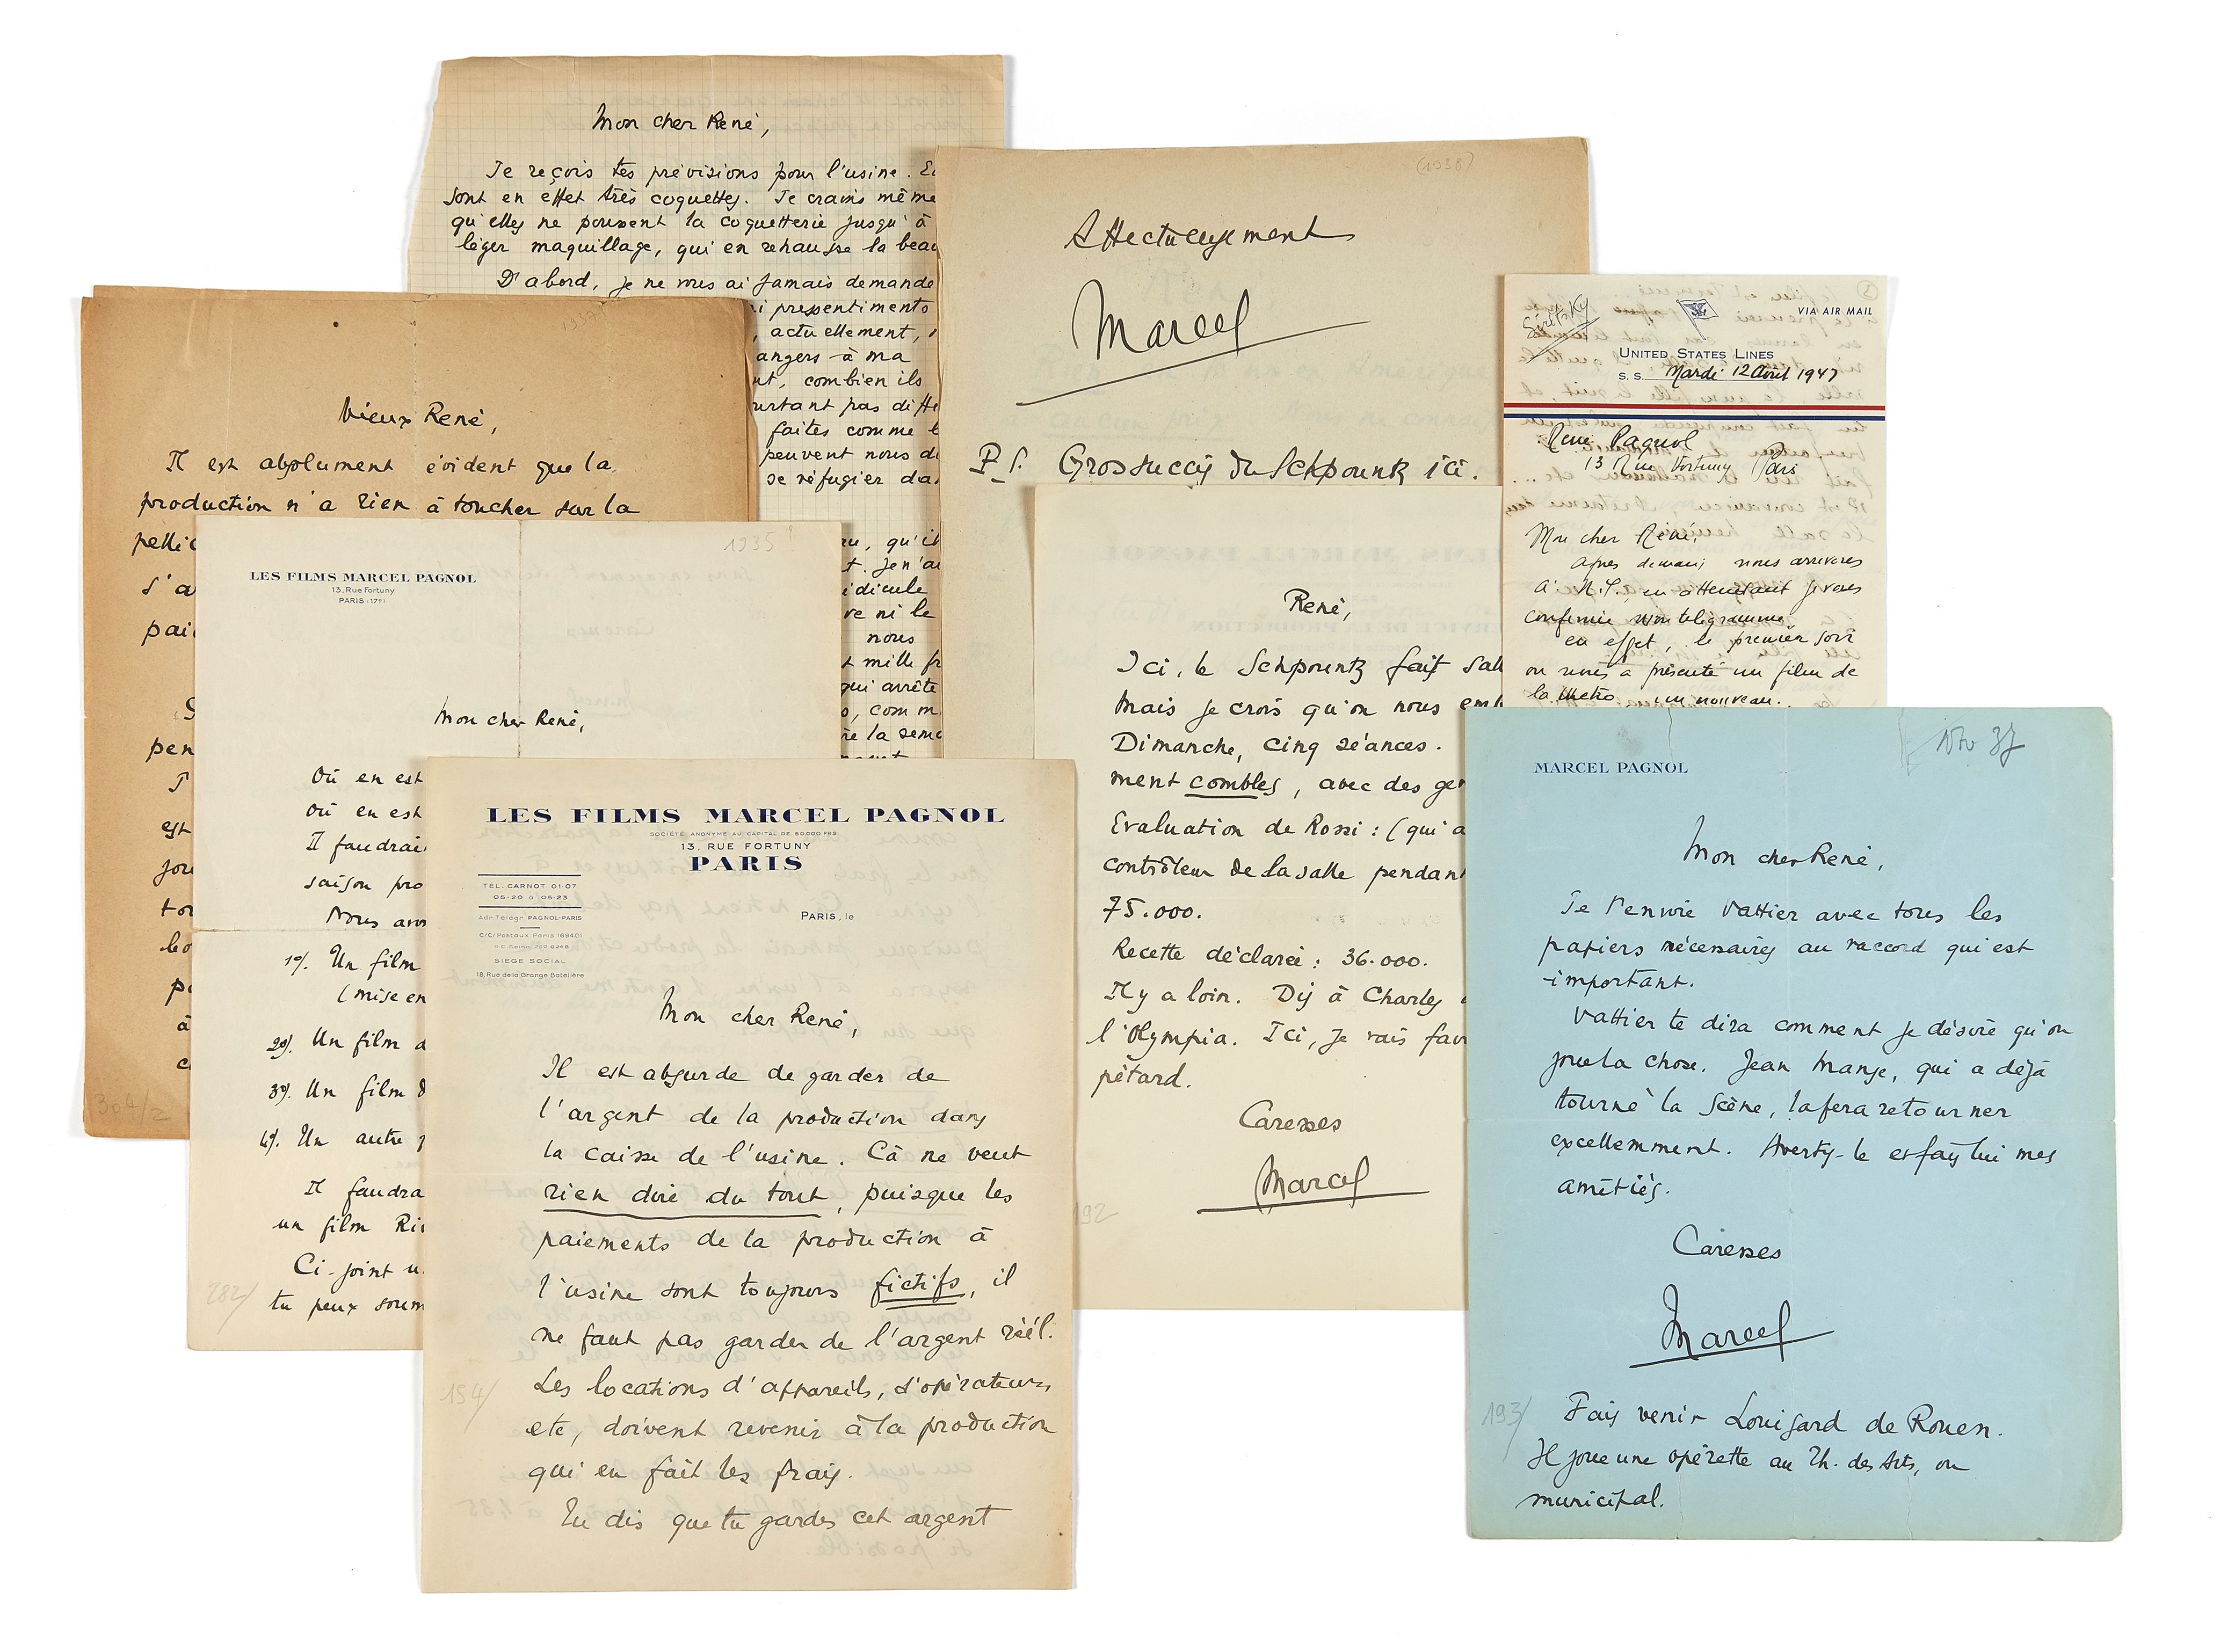 Mon cher René,
Je reçois tes prévisions pour l'usine. E
sont en effet très coquettes. Je crains même
qu'elles ne poussent la coquetterie jusqu'à
léger maquillage, qui en rehausse la beau
D'abord, je ne vous ai jamais demandé
i pressentiments
, actuellement,
angers à ma
nt, combien ils
urtant pas diffé
faites comme l
peuvent nous d
se réfugier da
au, qu'il
t. Je n'ai
idicule
ve ni le
nous
t mille fr
qui arrête
o, comm
re la sema
(1938)
Affectueusement
Marcel
P.S. Gros succès du Schpountz ici.
Vieux René,
Il est absolument évident que la
production n'a rien à toucher sur la
pellic
s'a
pai
pen
est
jou
tou
à
304/2
1935!
LES FILMS MARCEL PAGNOL
13, Rue Fortuny
PARIS (17e)
Mon cher René,
Où en est
Où en est
Il faudrai
saison pro
Nous avo
1°/. Un film
(mise en
2°/. Un film d
3°/. Un film d
4°/. Un autre
Il faudra
un film Ri
Ci-joint u
tu peux soum
282/
LES FILMS MARCEL PAGNOL
SOCIÉTÉ ANONYME AU CAPITAL DE 50.000 FRS
13, RUE FORTUNY
PARIS
TÉL. CARNOT 01-07
05-20 à 05-23
Adr. Télégr PAGNOL-PARIS
C/C/Postaux Paris 1694.01
SIÈGE SOCIAL
18, Rue de la Grange Batelière
PARIS, le
Mon cher René,
Il est absurde de garder de
l'argent de la production dans
la caisse de l'usine. Cà ne veut
rien dire du tout, puisque les
paiements de la production à
l'usine sont toujours fictifs, il
ne faut pas garder de l'argent réél.
Les locations d'appareils, d'opérateurs
etc, doivent revenir à la production
qui en fait les frais.
Tu dis que tu gardes cet argent
154/
René,
Ici, le Schpountz fait sall
Mais je crois qu'on nous emb
Dimanche, cinq séances.
ment combles, avec des gen
Evaluation de Rossi : (qui a
contrôleur de la salle pendant
75.000.
Recette déclarée : 36.000.
Il y a loin. Dis à Charles
l'Olympia. Ici, je vais fair
pétard.
Caresses
Marcel
192
VIA AIR MAIL
UNITED STATES LINES
S. S. Mardi 12 Août 1947
René Pagnol
13 Rue Fortuny Paris
Mon cher René,
après demain nous arriverons
à N.Y., en attendant je vous
confirme mon télégramme.
en effet, le premier soir
on nous a présenté un film de
la Metro, un nouveau.
Nov 37
MARCEL PAGNOL
Mon cher René,
Je t'envoie Vattier avec tous les
papiers nécessaires au raccord qui est
important.
Vattier te dira comment je désire qu'on
joue la chose. Jean Manse, qui a déjà
tourné la scène, la fera retourner
excellemment. Avertis-le et fais lui mes
amitiés.
Caresses
Marcel
193/
Fais venir Louisard de Rouen.
Il joue une opérette au Th. des Arts, ou
municipal.